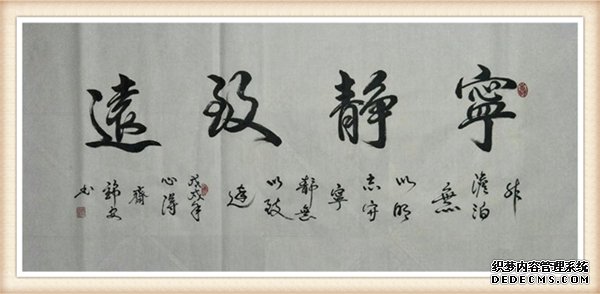 寧靜致遠
非
澹泊
無
以明
志
寧
靜無
以致
遠
戊戌年
心得
齋
书
织梦内容管理系统
DEDECMS.COM